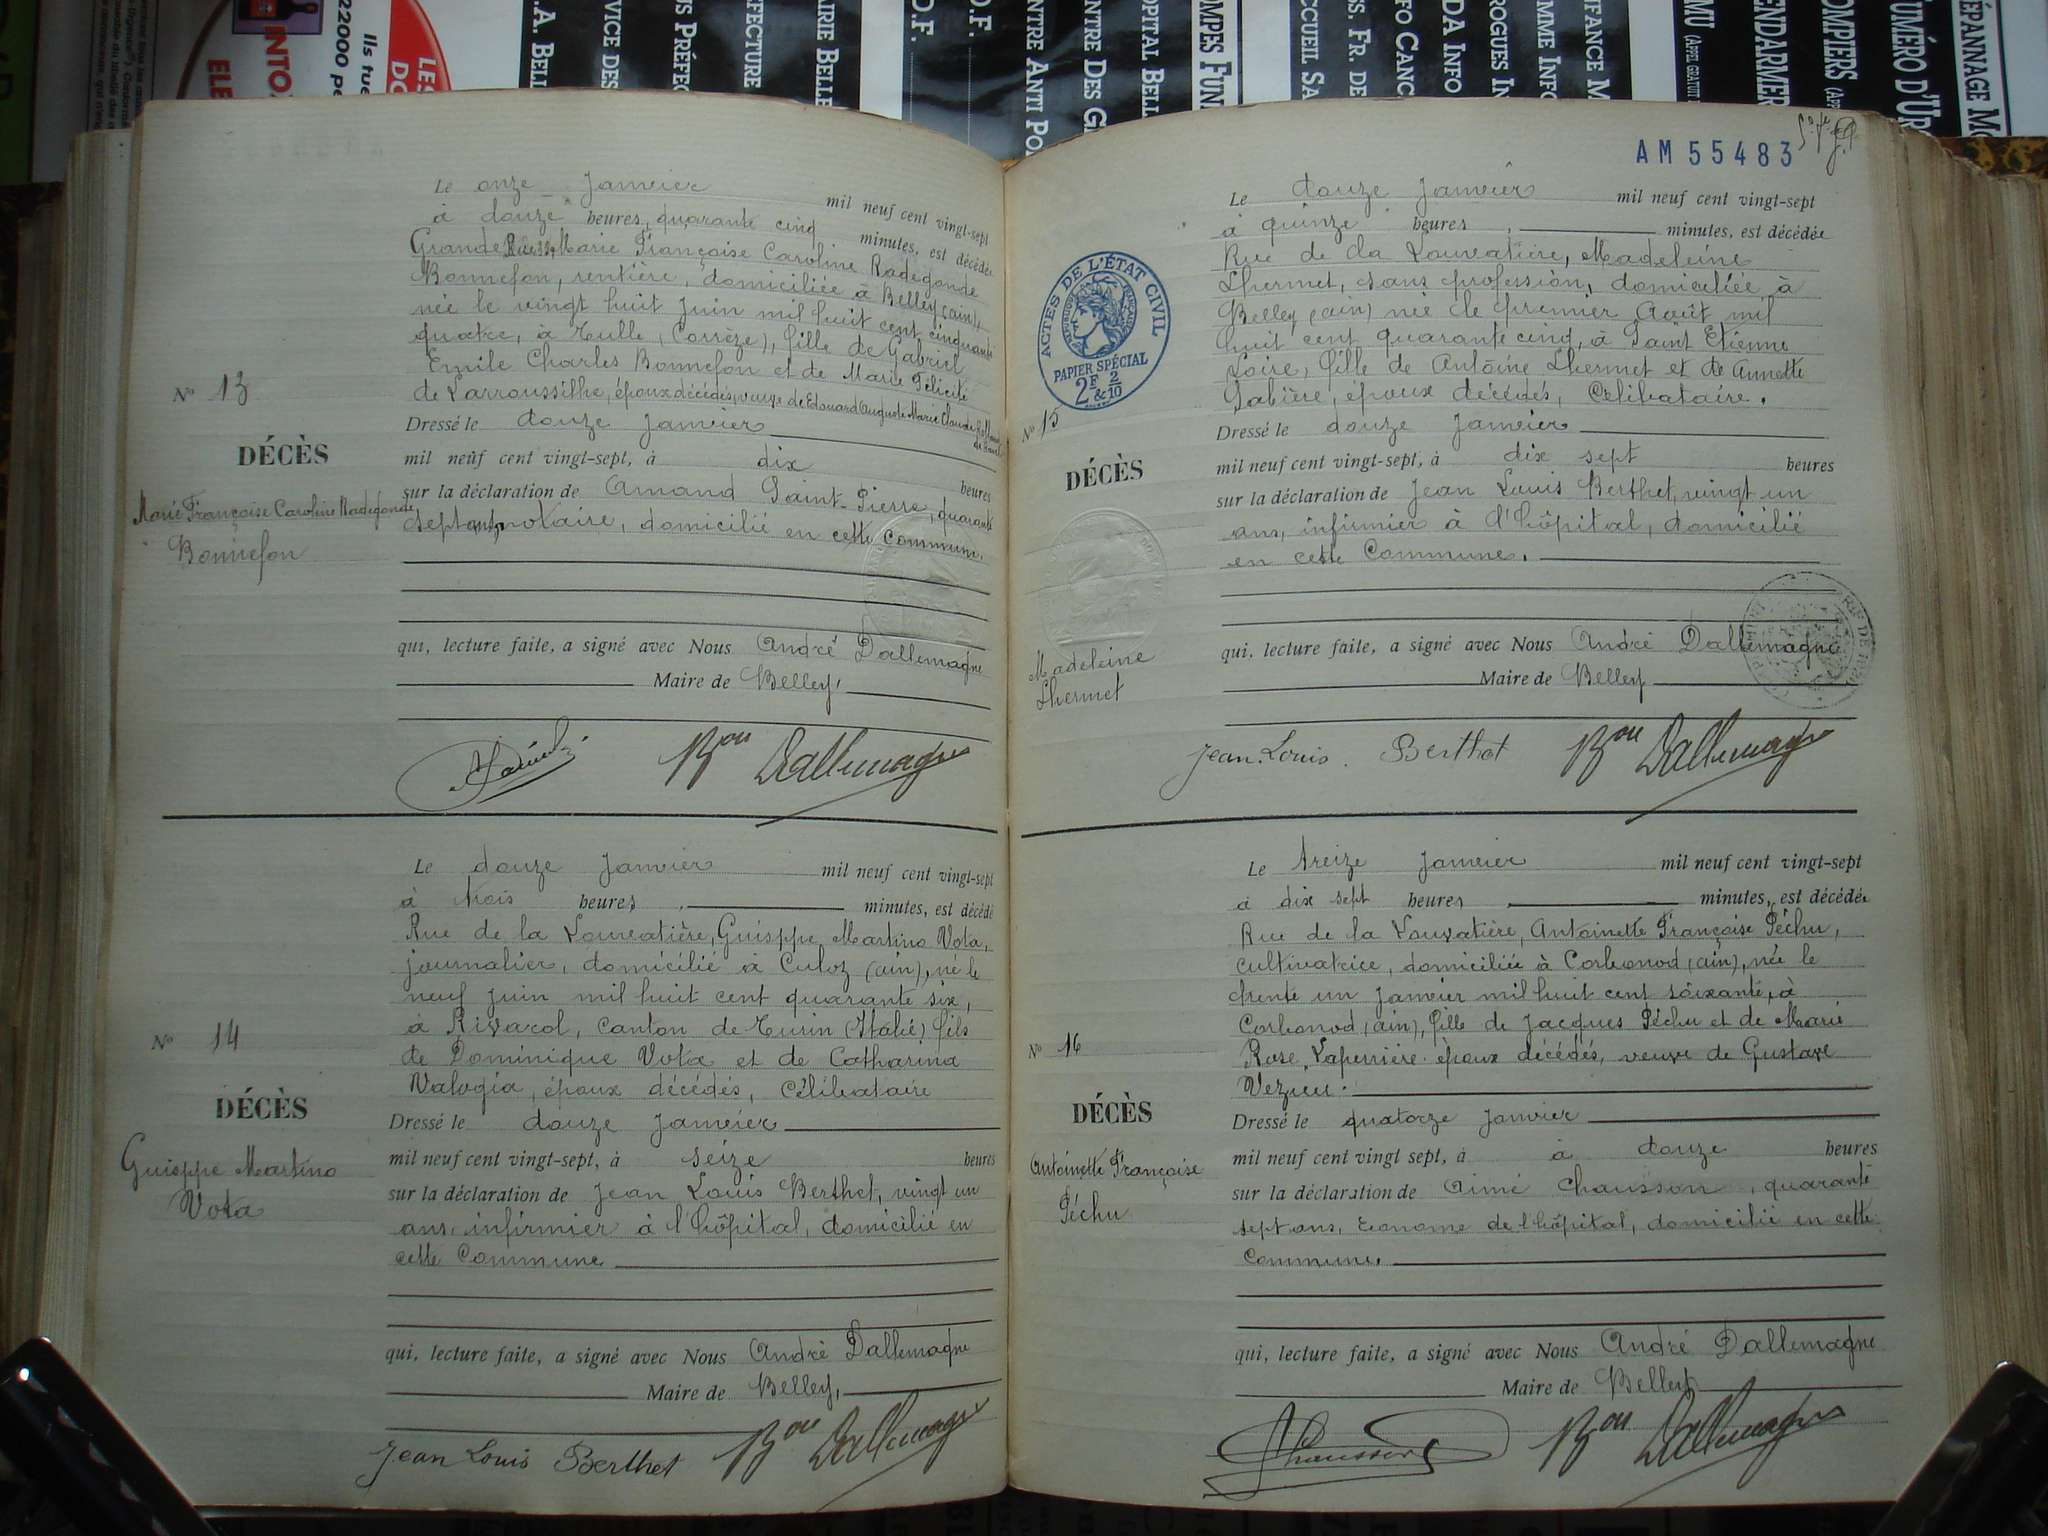 22000 pe
Ils tue
LES
DO
INTO
ELE
.A. BELLE
VICE DES
US PRÉFEC
FECTURE
AIRIE BELLE
D.F.
D.F.
ENTRE ANTI POI
ENTRE DES GR
OPITAL BELL
OMPES FUN
CCUEIL SA
SS. FR. DE
FO CANC
DA INFO
ROGUES IN
MME INFO
NFANCE M
MU (APPEL GRATUIT
ENDARMER
OMPIERS (AP
UMÉRO D'URG
ÉPANNAGE MO
Le onze Janvier mil neuf cent vingt-sept
à douze heures, quarante cinq minutes, est décédée
Grande Rue, Marie Françoise Caroline Radegonde
Bonnefon, rentière, domiciliée à Belley (ain),
née le vingt huit Juin mil huit cent cinquante
quatre, à Tulle, (Corrèze), fille de Gabriel
Emile Charles Bonnefon et de Marie Félicité
de Larroussilhe, époux décédés, veuve de Edouard Auguste Marie Claude
Nº 13
DÉCÈS
Marie Françoise Caroline Radegonde
Bonnefon
Dressé le douze Janvier
mil neuf cent vingt-sept, à dix heures
sur la déclaration de Amand Saint-Pierre, quarante
sept ans, notaire, domicilié en cette commune.
qui, lecture faite, a signé avec Nous André Dallemagne
Maire de Belley,
Bon Dallemagne
Le douze Janvier mil neuf cent vingt-sept
à trois heures, minutes, est décédé
Rue de la Louvatière, Guisppe Martino Vota,
journalier, domicilié à Culoz (ain), né le
neuf juin mil huit cent quarante six,
à Rivarol, Canton de Turin (Italie) fils
de Dominique Vota et de Catharina
Valogia, époux décédés, Célibataire
Nº 14
DÉCÈS
Guisppe Martino
Vota
Dressé le douze Janvier
mil neuf cent vingt-sept, à seize heures
sur la déclaration de Jean Louis Berthet, vingt un
ans, infirmier à l'hôpital, domicilié en
cette Commune
qui, lecture faite, a signé avec Nous André Dallemagne
Maire de Belley,
Jean Louis Berthet Bon Dallemagne
AM 55483
Le douze Janvier mil neuf cent vingt-sept
à quinze heures, minutes, est décédée
Rue de la Louvatière, Madeleine
Lhermet, sans profession, domiciliée à
Belley (ain) née le premier Août mil
huit cent quarante cinq, à Saint Etienne
Loire, fille de Antoine Lhermet et de Annette
Sabière, époux décédés, Célibataire.
ACTES DE L'ÉTAT CIVIL
RÉPUBLIQUE FRANÇAISE
PAPIER SPÉCIAL
2F & 2/10
Nº 15
DÉCÈS
Madeleine
Lhermet
Dressé le douze Janvier
mil neuf cent vingt-sept, à dix sept heures
sur la déclaration de Jean Louis Berthet, vingt un
ans, infirmier à l'hôpital, domicilié
en cette Commune.
qui, lecture faite, a signé avec Nous André Dallemagne
Maire de Belley
Jean-Louis. Berthet Bon Dallemagne
Le treize Janvier mil neuf cent vingt-sept
à dix sept heures minutes, est décédée
Rue de la Louvatière, Antoinette Françoise Péchu,
cultivatrice, domiciliée à Corbonod (ain), née le
trente un Janvier mil huit cent soixante, à
Corbonod (ain), fille de Jacques Péchu et de Marie
Rose Laperrière époux décédés, veuve de Gustave
Vezieu.
Nº 16
DÉCÈS
Antoinette Françoise
Péchu
Dressé le quatorze Janvier
mil neuf cent vingt sept, à à douze heures
sur la déclaration de Aimé Chausson, quarante
sept ans, Econome de l'hôpital, domicilié en cette
Commune.
qui, lecture faite, a signé avec Nous André Dallemagne
Maire de Belley
Chausson Bon Dallemagne